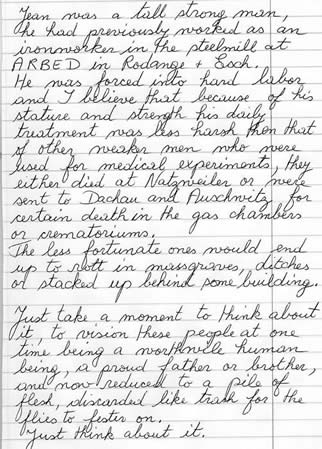 Jean was a tall strong man,
he had previously worked as an
ironworker in the steelmill at
ARBED in Rodange + Esch.
He was forced into hard labor
and I believe that because of his
stature and strength his daily
treatment was less harsh then that
of other weaker men who were
used for medical experiments, they
either died at Natzweiler or were
sent to Dachau and Auschwitz, for
certain death in the gas chambers
or crematoriums.
The less fortunate ones would end
up to rott in massgraves, ditches
or stacked up behind some building.
Just take a moment to think about
it, to vision these people at one
time being a worthwile human
being, a proud father or brother,
and now reduced to a pile of
flesh, discarded like trash for the
flies to fester on.
Just think about it.